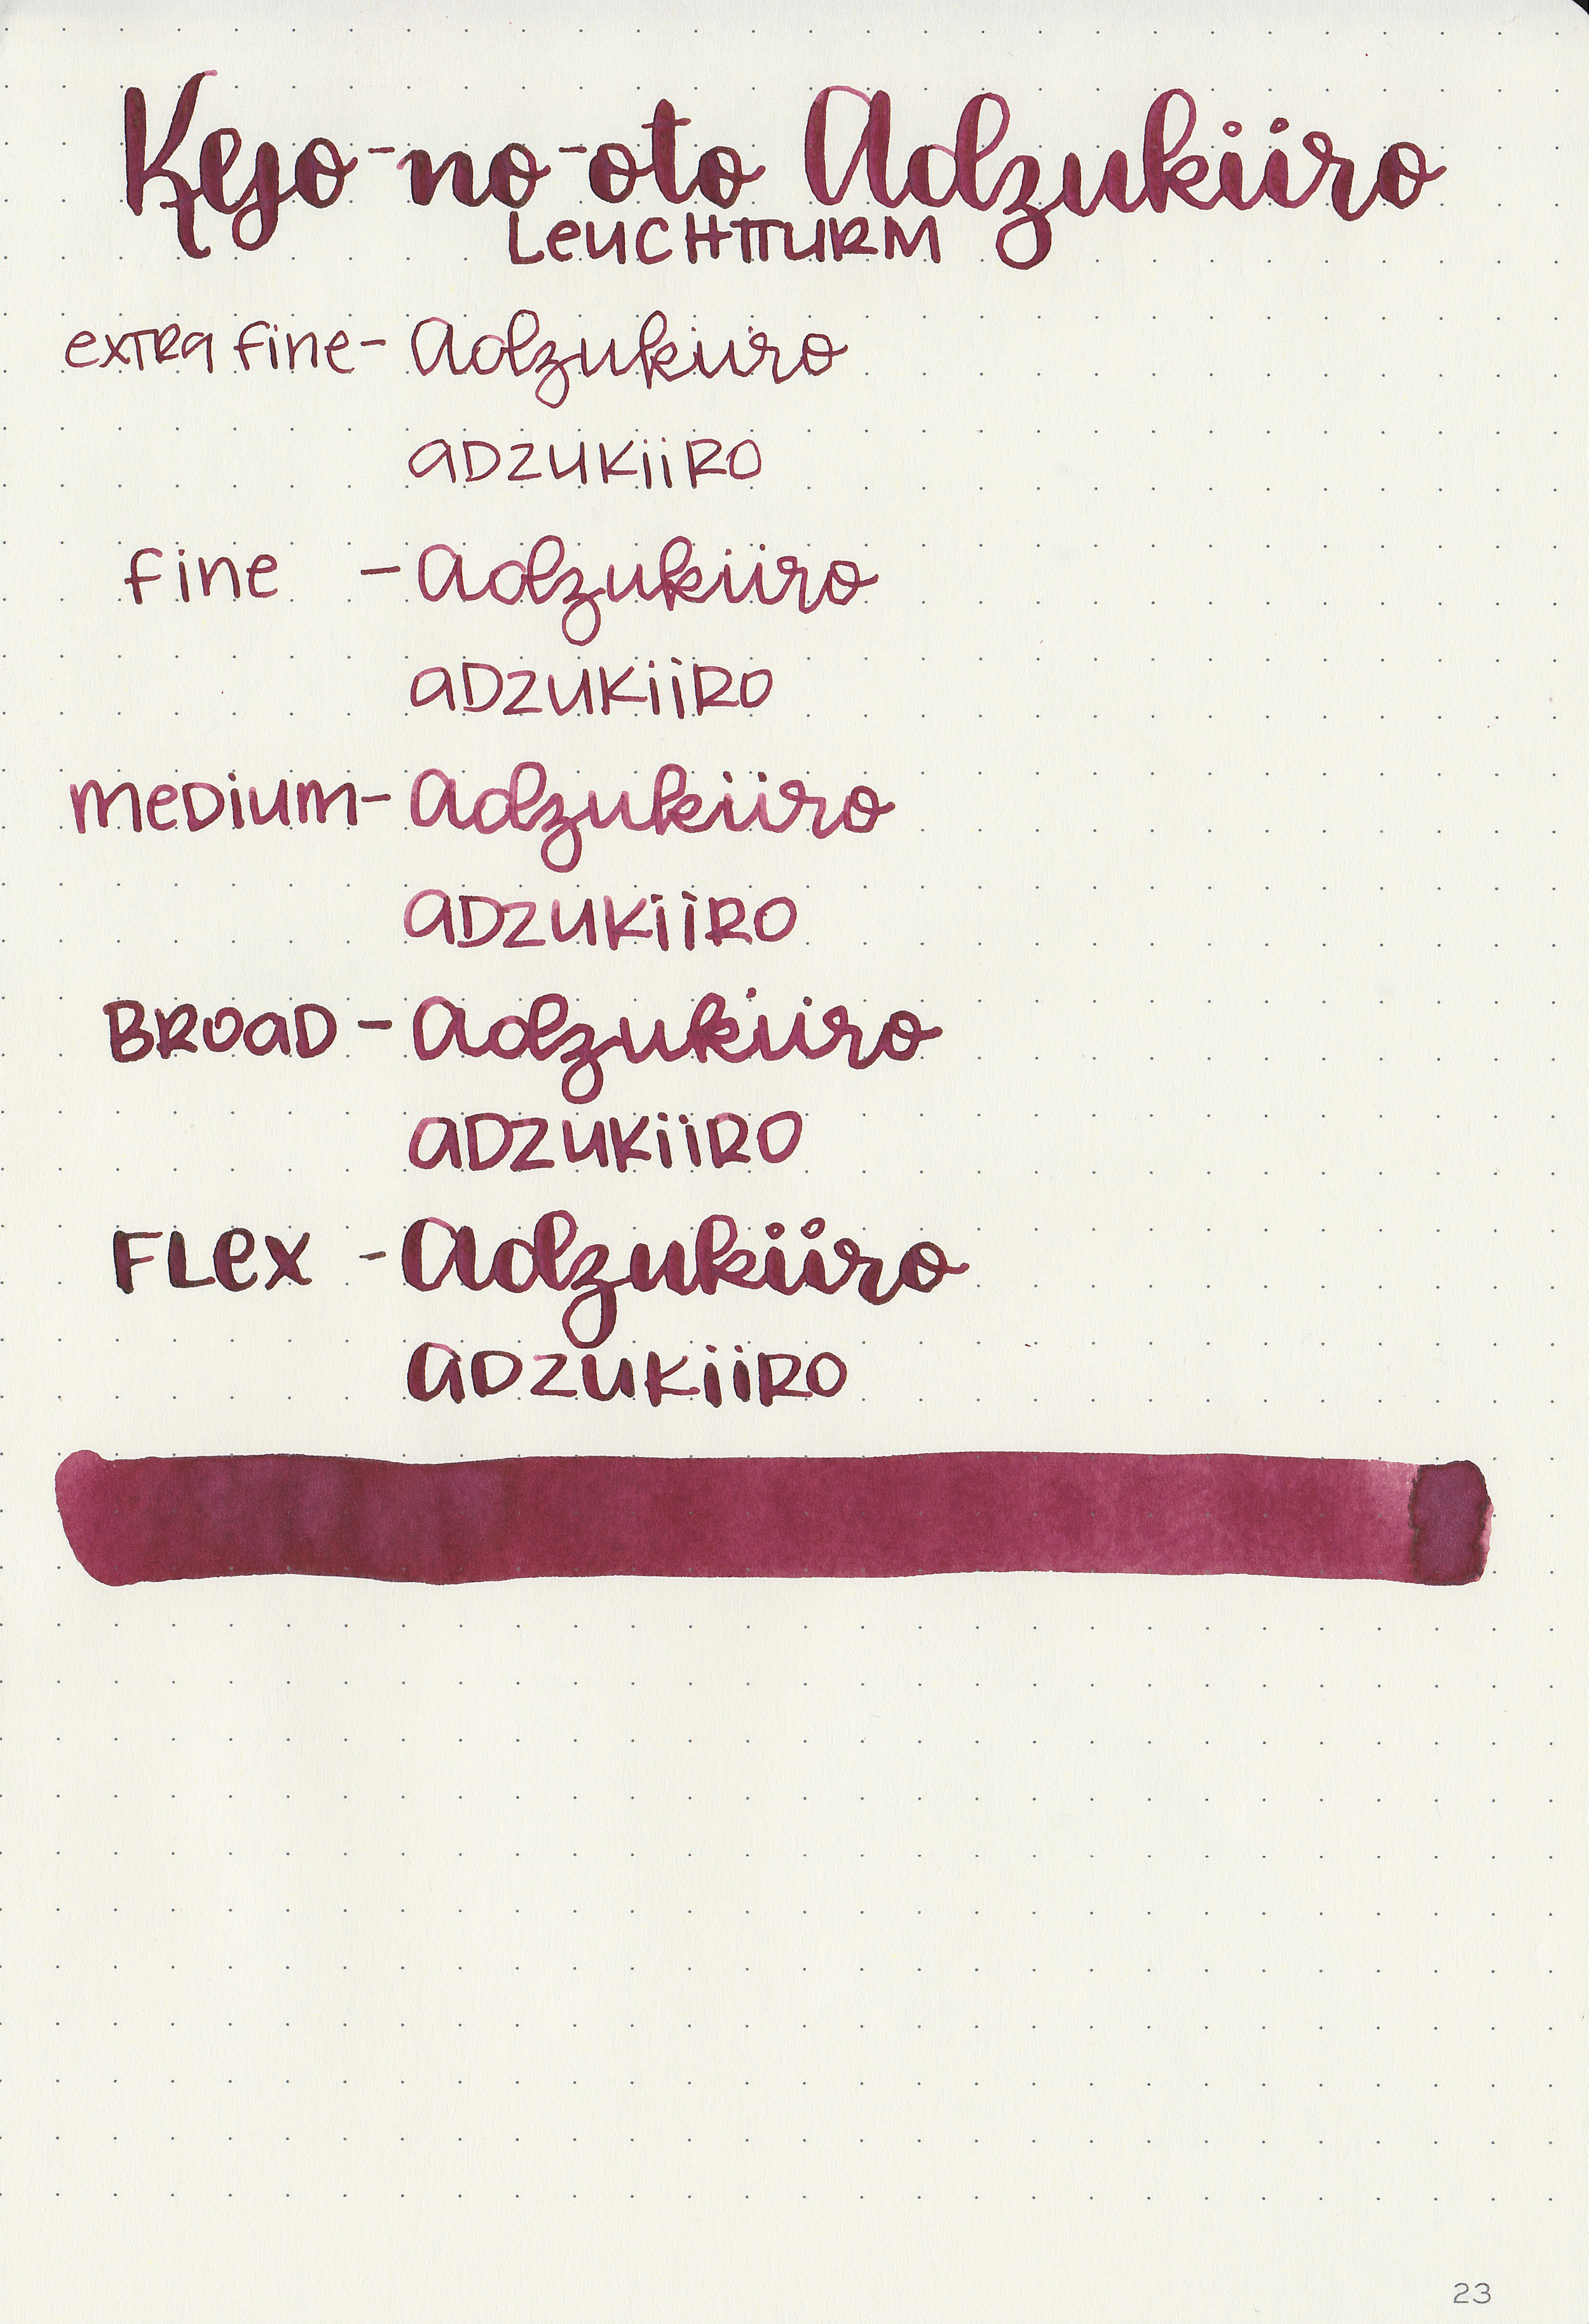 Kyo-no-oto Adzukiiro
LEUCHTTURM
extra fine - Adzukiiro
ADZUKiiRO
fine - Adzukiiro
ADZUKiiRO
MeDium - Adzukiiro
ADZUKiiRO
BROAD - Adzukiiro
ADZUKiiRO
FLex - Adzukiiro
ADZUKiiRO
23